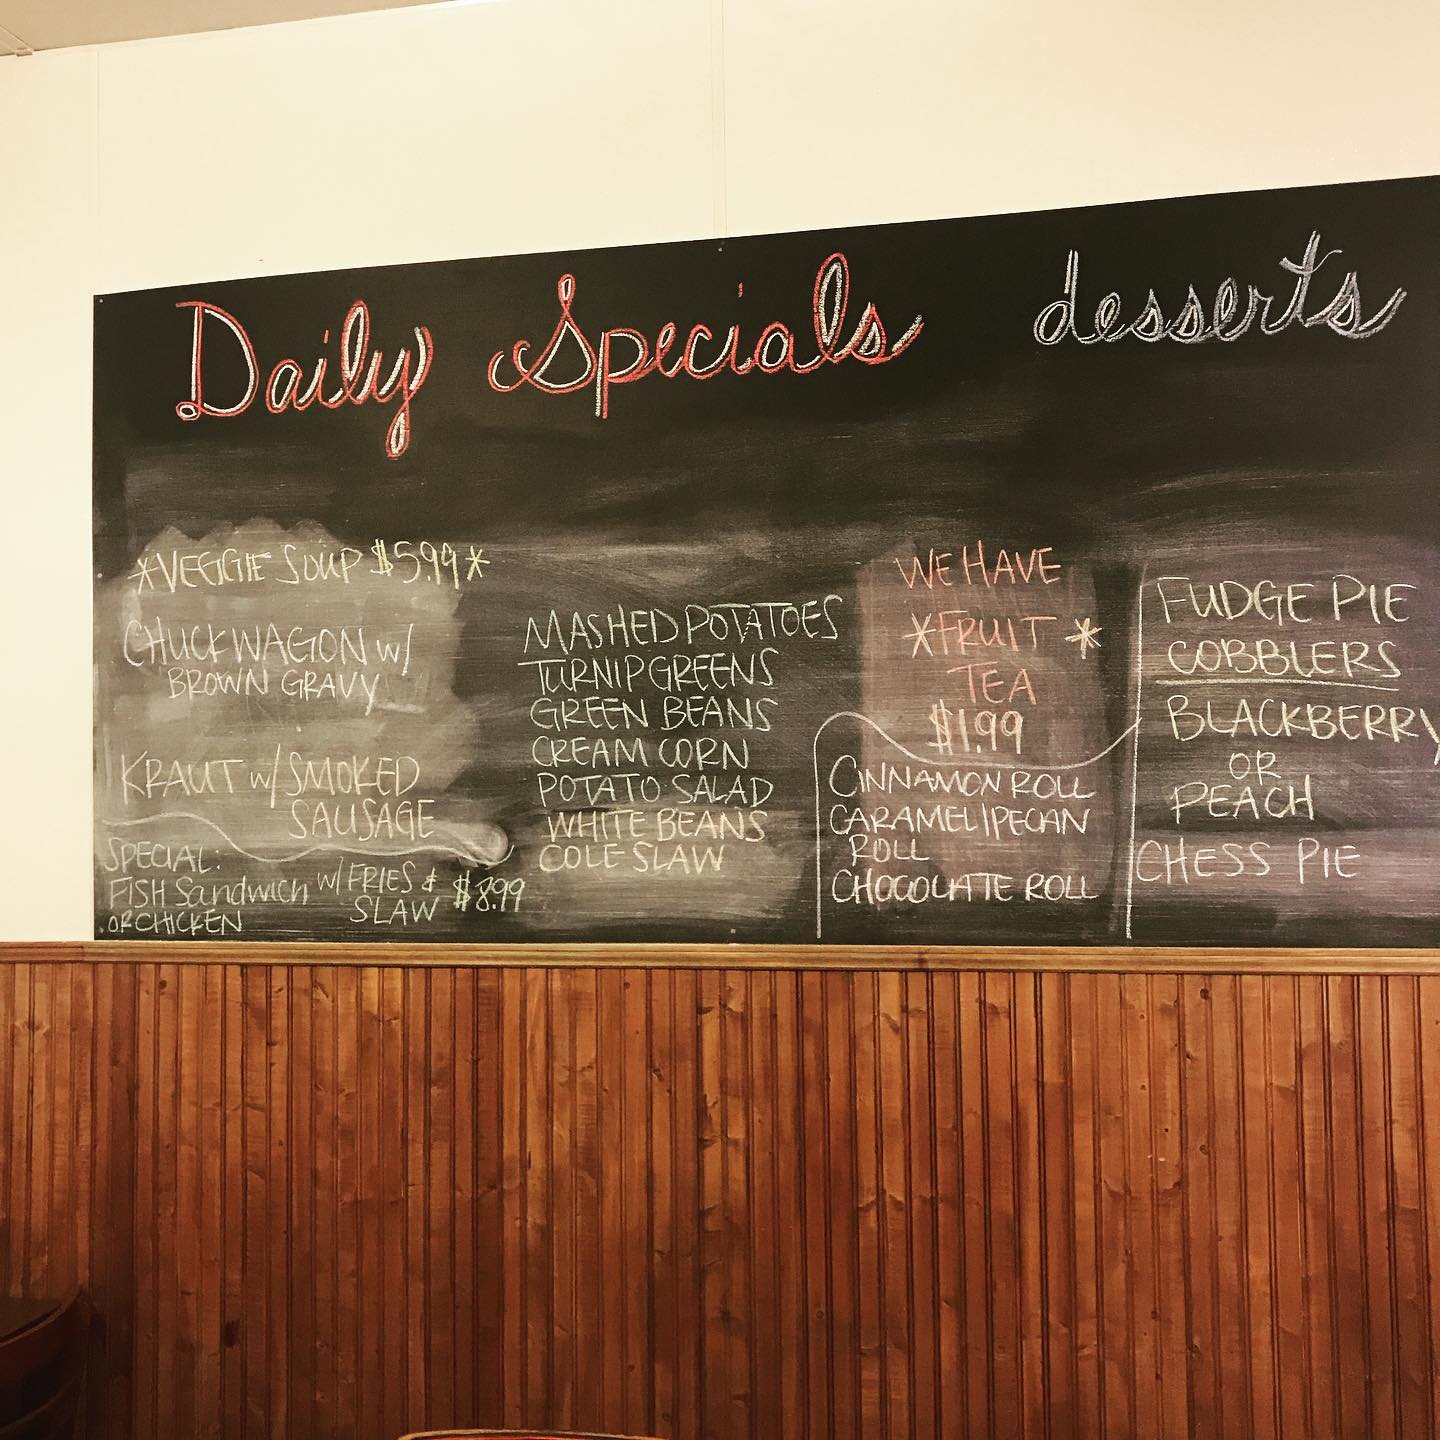 Daily Specials
desserts
*VEGGIE SOUP $5.99*
CHUCKWAGON w/
BROWN GRAVY
KRAUT w/ SMOKED
SAUSAGE
SPECIAL:
FISH Sandwich w/ FRIES & $8.99
OR CHICKEN SLAW
MASHED POTATOES
TURNIP GREENS
GREEN BEANS
CREAM CORN
POTATO SALAD
WHITE BEANS
COLE SLAW
WE HAVE
*FRUIT *
TEA
$1.99
CINNAMON ROLL
CARAMEL/PECAN
ROLL
CHOCOLATE ROLL
FUDGE PIE
COBBLERS
BLACKBERRY
OR
PEACH
CHESS PIE